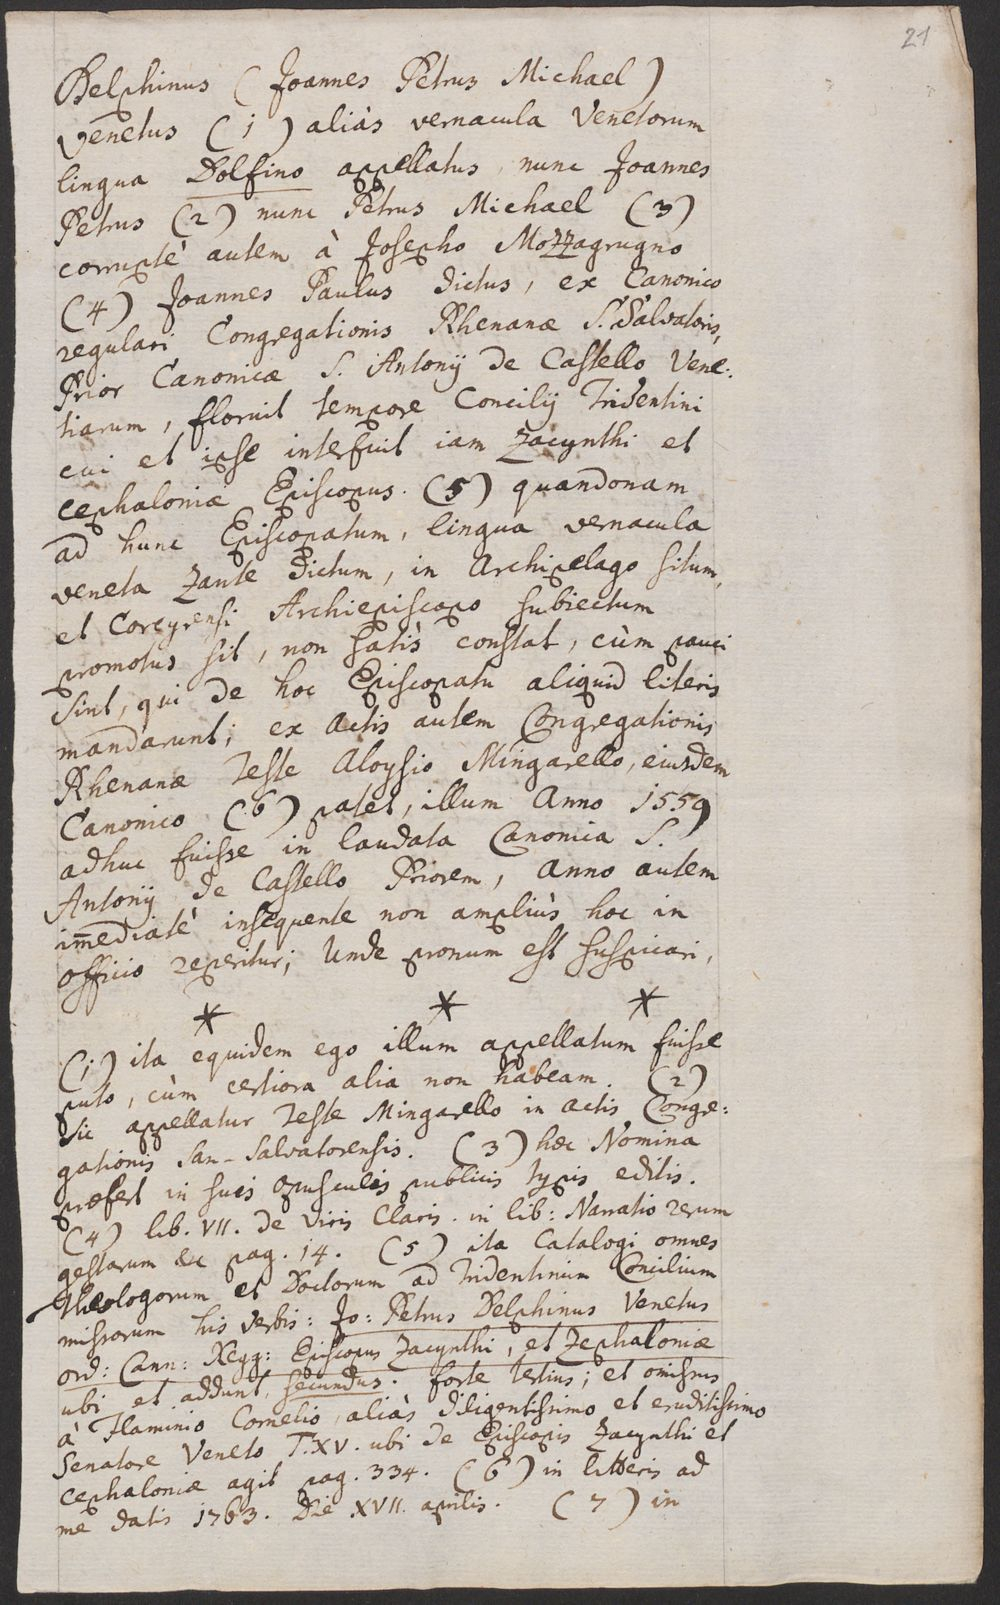 21
Delphinus (Joannes Petrus Michael)
Venetus (1) aliàs vernacula Venetorum
lingua Dolfino appellatus, nunc Joannes
Petrus (2) nunc Petrus Michael (3)
corruptè autem à Josepho Mozzagrugno
(4) Joannes Paulus dictus, ex Canonico
regulari Congregationis Rhenanæ S. Salvatoris,
Prior Canonicæ S. Antonij de Castello Vene:
tiarum, floruit tempore Concilij Tridentini
cui et ipse interfuit iam Zacynthi et
cephaloniæ Episcopus. (5) quandonam
ad hunc Episcopatum, lingua vernacula
veneta Zante dictum, in Archipelago situm,
et Corcyrensi Archiepiscopo subiectum
promotus sit, non satis constat, cùm pauci
sint, qui de hoc Episcopatu aliquid literis
mandarunt; ex actis autem Congregationis
Rhenanæ Teste Aloysio Mingarello, eiusdem
Canonico (6) patet, illum Anno 1559
adhuc fuisse in laudata Canonica S.
Antonij de Castello Priorem, anno autem
im̅ediatè insequente non ampliùs hoc in
officio reperitur; Unde pronum est suspicari,
* * *
(1) ita equidem ego illum appellatum fuisse
puto, cùm certiora alia non habeam. (2)
sic appellatur Teste Mingarello in actis Congre:
gationis San-Salvatorensis. (3) hæc Nomina
præfert in suis opusculis publicis typis editis.
(4) lib. VII. de Viris Claris. in lib: Narratio rerum
gestarum &c pag. 14. (5) ita Catalogi omnes
Theologorum et Doctorum ad Tridentinum Concilium
missorum his verbis: Jo: Petrus Delphinus Venetus
ord: Cann: Regg: Episcopus Zacynthi, et Zephaloniæ
ubi et addunt, secundus. forte tertius; et omissus
à Flaminio Cornelio, aliàs diligentissimo et eruditissimo
Senatore Veneto T. XV. ubi de Episcopis Zacynthi et
cephaloniæ agit pag. 334. (6) in litteris ad
me datis 1763. Die XVII. aprilis. (7) in